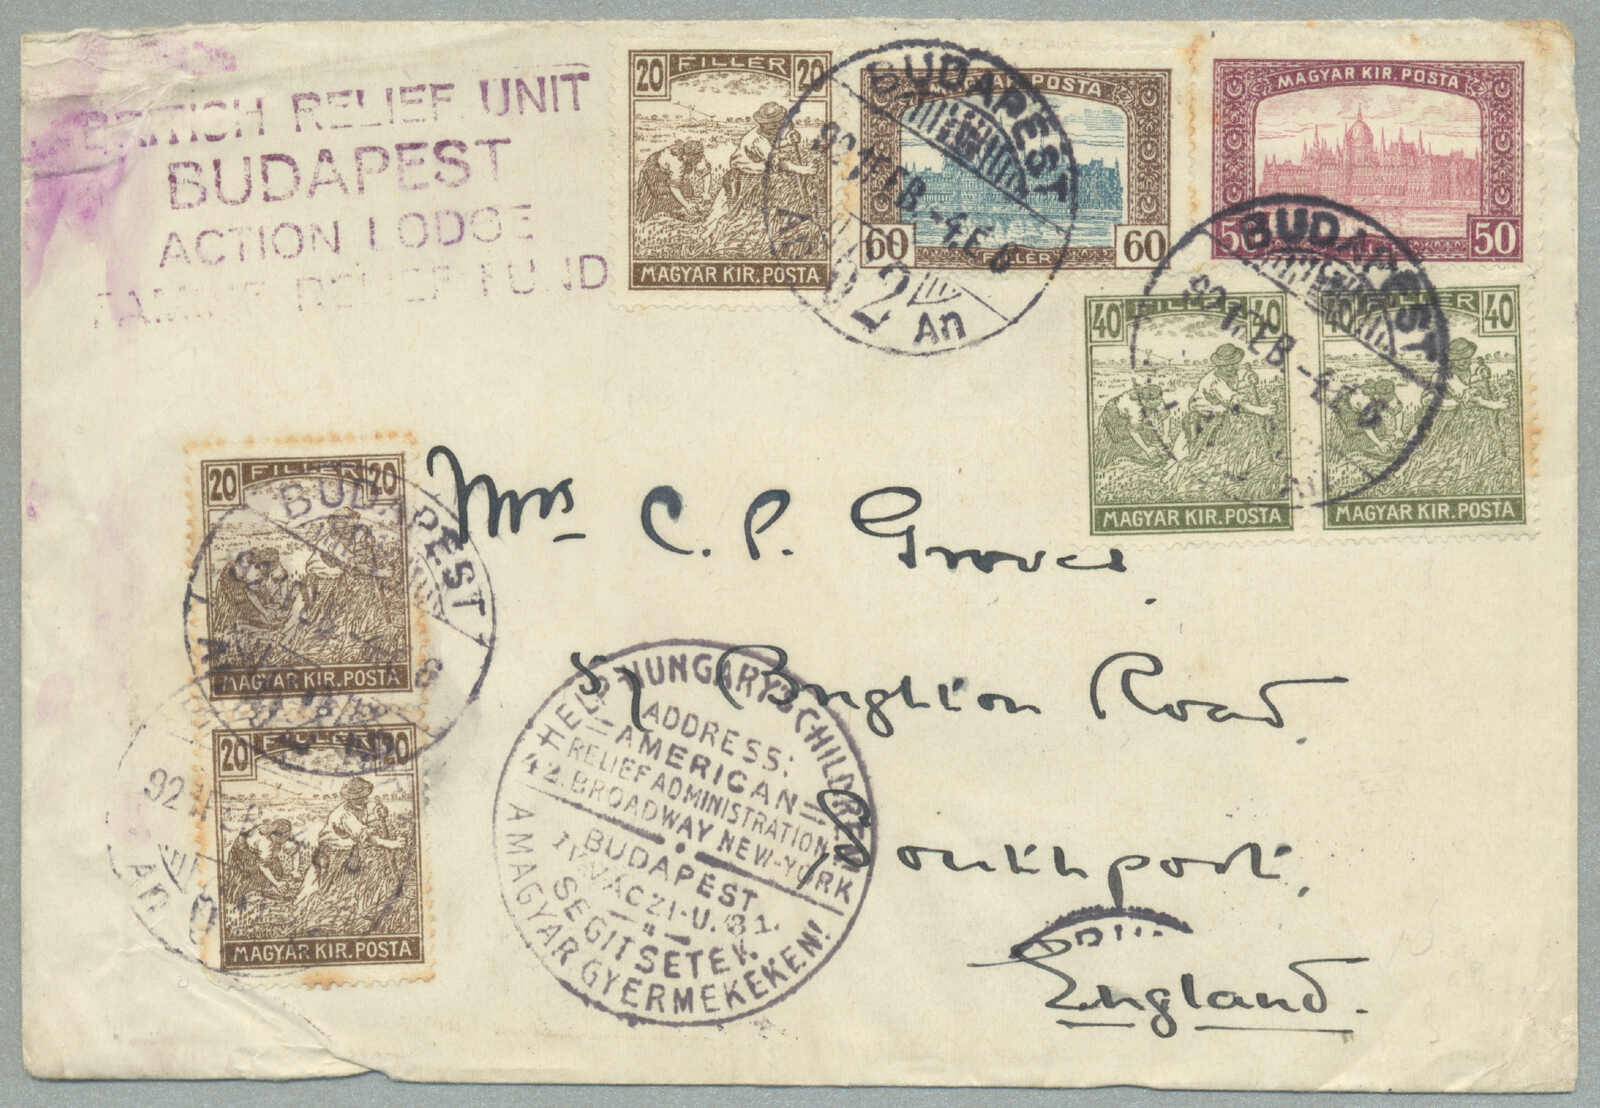 BRITISH RELIEF UNIT
BUDAPEST
ACTION LODGE
FAMINE RELIEF FUND
20 FILLER 20
MAGYAR KIR. POSTA
MAGYAR KIR. POSTA
60 60
FILLER
MAGYAR KIR. POSTA
50 50
BUDAPEST
921 FEB. -4. E 6
2
An
BUDAPEST
921 FEB. -4. E 6
40 FILLER 40
MAGYAR KIR. POSTA
40 FILLER 40
MAGYAR KIR. POSTA
20 FILLER 20
MAGYAR KIR. POSTA
BUDAPEST
20 FILLER 20
MAGYAR KIR. POSTA
Mrs C. P. Groves
Brighton Road
Southport,
England.
HELP HUNGARY'S CHILDREN
ADDRESS:
AMERICAN
RELIEF ADMINISTRATION
42. BROADWAY NEW-YORK
BUDAPEST
SEGITSETEK
A MAGYAR GYERMEKEKEN!